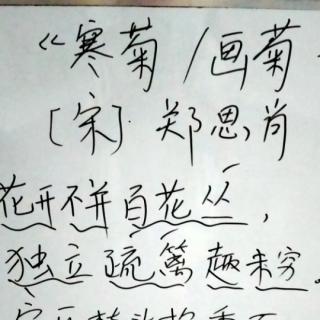 《寒菊/画菊
[宋]. 郑思肖
花开不拼百花丛,
独立疏篱趣未穷。